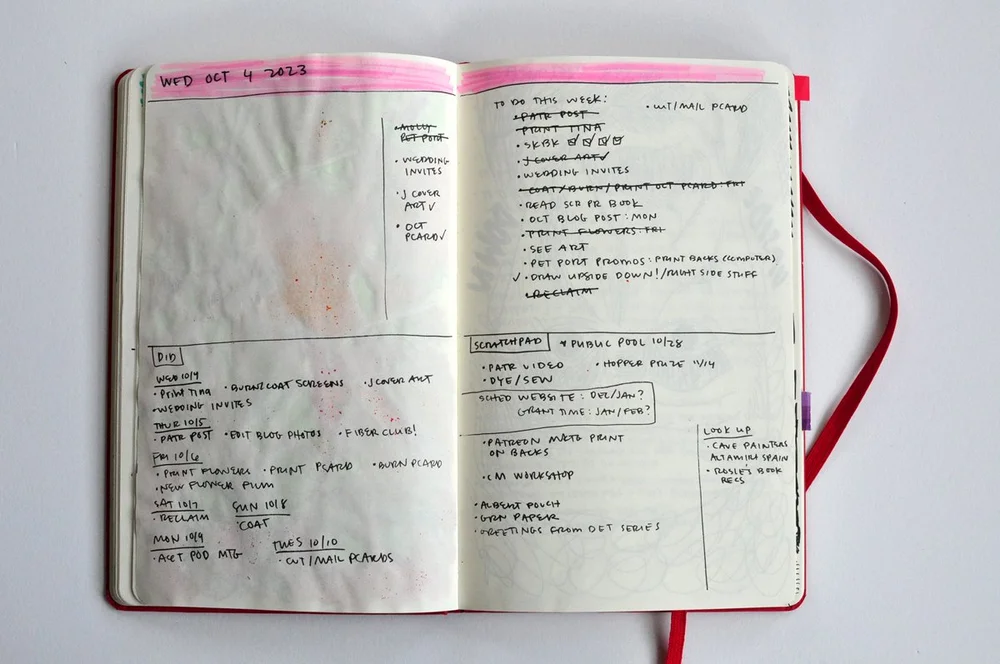 WED OCT 4 2023
• MOLLY
PET PORT
• WEDDING
INVITES
• J COVER
ART ✓
• OCT
PCARD ✓
DID
WED 10/4
• PRINT TINA • BURN/COAT SCREENS • J COVER ART
• WEDDING INVITES
THUR 10/5
• PATR POST • EDIT BLOG PHOTOS • FIBER CLUB!
FRI 10/6
• PRINT FLOWERS • PRINT PCARD • BURN PCARD
• NEW FLOWER FILM
SAT 10/7 SUN 10/8
• RECLAIM • COAT
MON 10/9 TUES 10/10
POD MTG • CUT/MAIL PCARDS
TO DO THIS WEEK: • CUT/MAIL PCARD
• PATR POST
PRINT TINA
• SKBK ☑ ☑ ☑ ☑
• J COVER ART ✓
• WEDDING INVITES
• COAT/BURN/PRINT OCT PCARD: FRI
• READ SCR PR BOOK
• OCT BLOG POST: MON
• PRINT FLOWERS: FRI
• SEE ART
• PET PORT PROMOS: PRINT BACKS (COMPUTER)
✓ • DRAW UPSIDE DOWN!/RIGHT SIDE STUFF
• RECLAIM
SCRATCHPAD * PUBLIC POOL 10/28
• PATR VIDEO • HOPPER PRIZE 11/14
• DYE/SEW
SCHED WEBSITE: DEC/JAN?
GRANT TIME: JAN/FEB?
• PATREON MKTG PRINT
ON BACKS
• CM WORKSHOP
• ALBERT POUCH
• GRN PAPER
• GREETINGS FROM SERIES
LOOK UP
• CAVE PAINTERS
SPAIN
• ROSIE'S BOOK
RECS